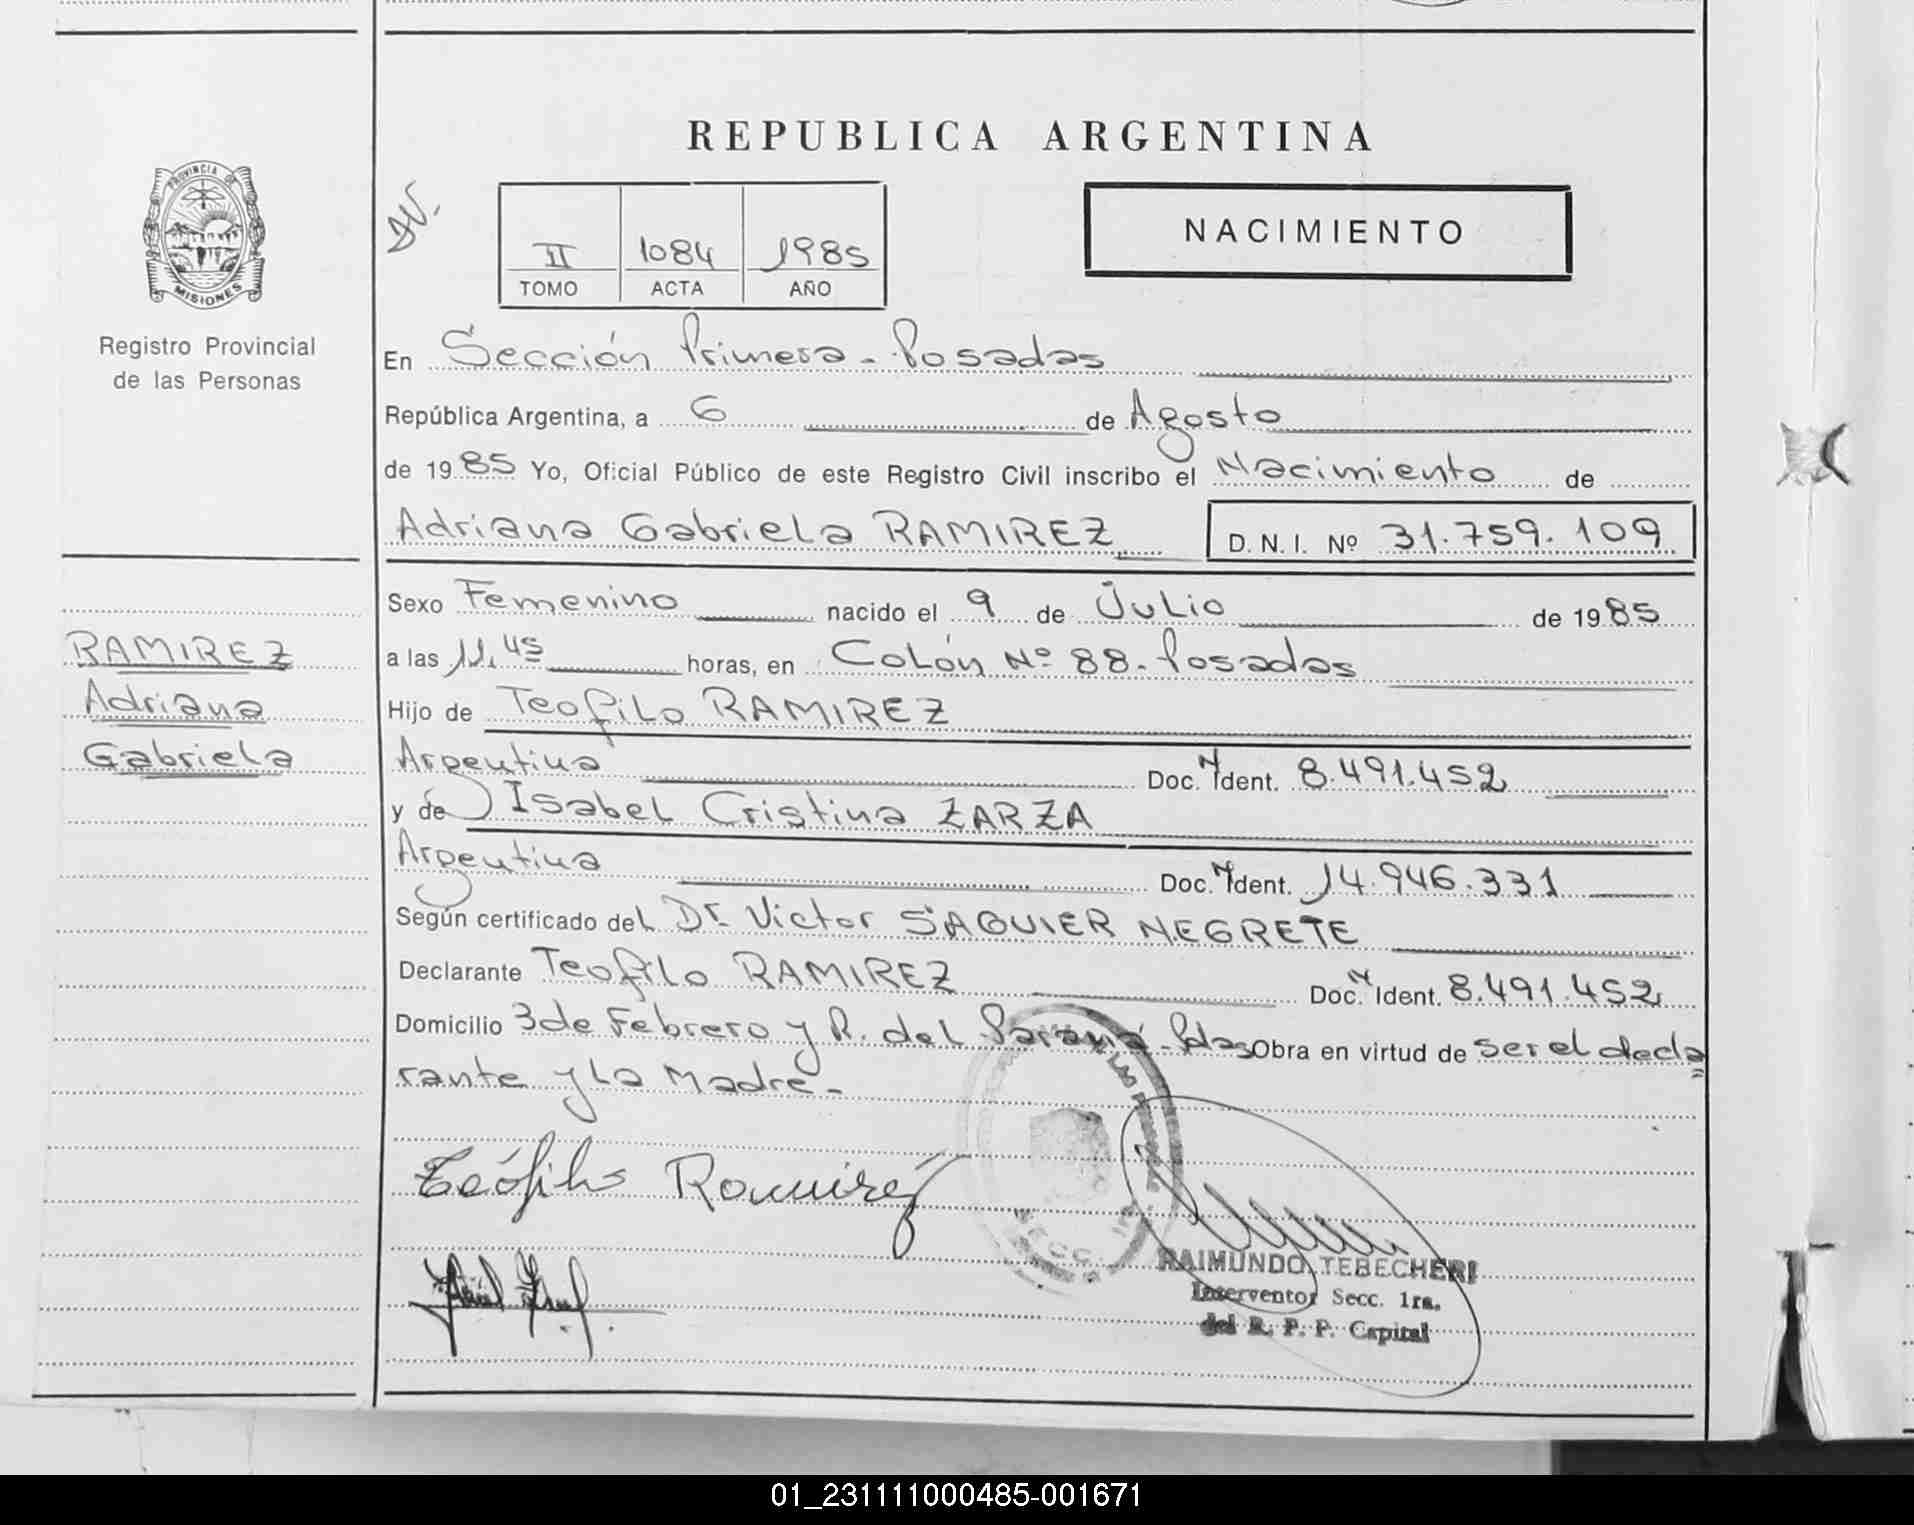 REPUBLICA ARGENTINA
PROVINCIA DE
MISIONES
Registro Provincial
de las Personas
II 1084 1985
TOMO ACTA AÑO
NACIMIENTO
En Sección Primera - Posadas
República Argentina, a 6 de Agosto
de 1985 Yo, Oficial Público de este Registro Civil inscribo el Nacimiento de
Adriana Gabriela RAMIREZ D.N.I. Nº 31.759.109
Sexo Femenino nacido el 9 de Julio de 1985
RAMIREZ
Adriana
Gabriela
a las 11.45 horas, en Colón Nº 88. Posadas
Hijo de Teofilo RAMIREZ
Argentina Doc. N Ident. 8.491.452
y de Isabel Cristina ZARZA
Argentina Doc. N Ident. 14.946.331
Según certificado del Dr. Victor SAQUIER NEGRETE
Declarante Teofilo RAMIREZ Doc. N Ident. 8.491.452
Domicilio 3 de Febrero y R. del Paraná - Pdas Obra en virtud de ser el decla
rante y la Madre -
Teófilo Ramirez
SECC. 1ra
RAIMUNDO TEBECHERI
Interventor Secc. 1ra.
del R. P. P. Capital
01_231111000485-001671